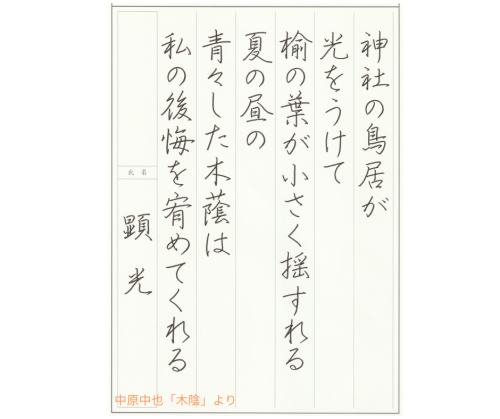 神社の鳥居が
光をうけて
楡の葉が小さく揺すれる
夏の昼の
青々した木蔭は
私の後悔を宥めてくれる
氏名
顕光
中原中也「木陰」より